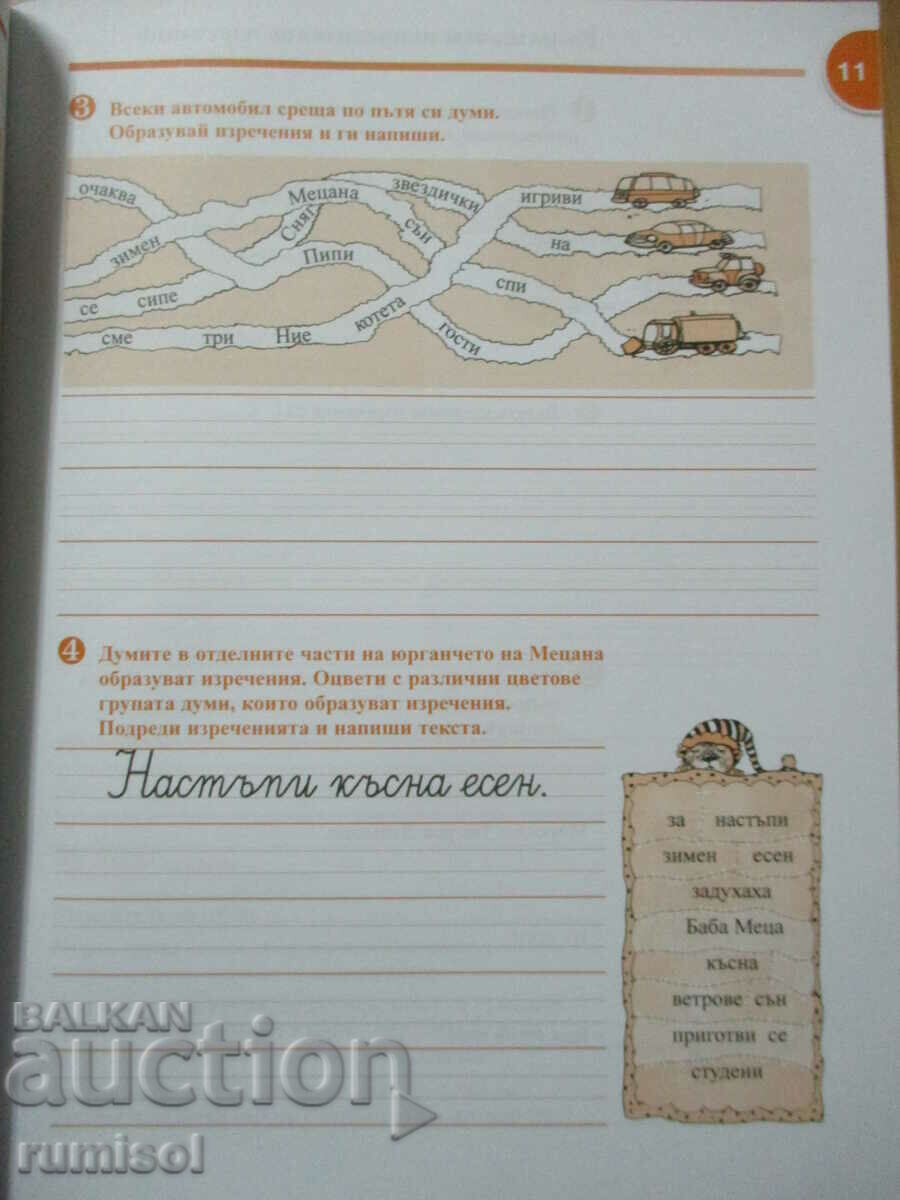 11
3 Всеки автомобил среща по пътя си думи.
Образувай изречения и ги напиши.
очаква
Мецана
звездички
игриви
зимен
Сняг
сън
на
Пипи
се сипе
спи
котета
гости
сме три Ние
4 Думите в отделните части на юрганчето на Мецана
образуват изречения. Оцвети с различни цветове
групата думи, които образуват изречения.
Подреди изреченията и напиши текста.
Настъпи късна есен.
за настъпи
зимен есен
задухаха
Баба Меца
късна
ветрове сън
приготви се
студени
BALKAN
auction
rumisol